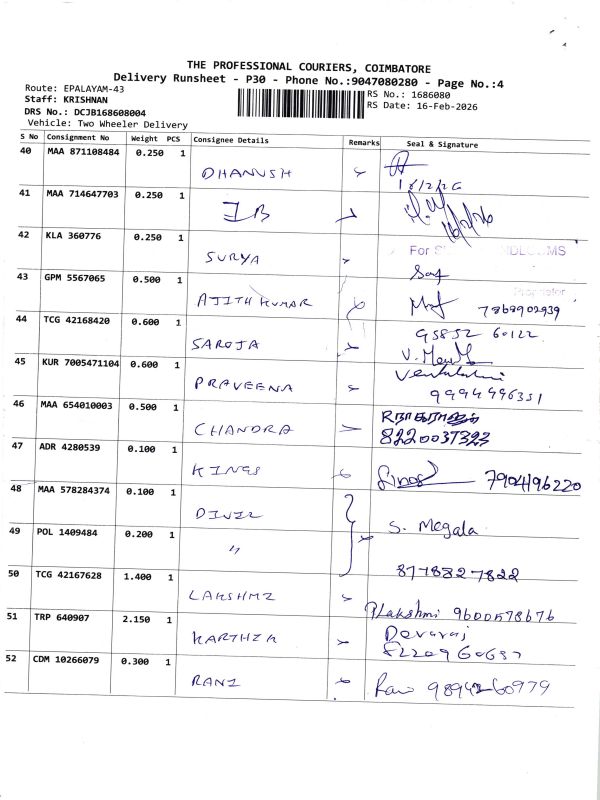 THE PROFESSIONAL COURIERS, COIMBATORE
Delivery Runsheet - P30 - Phone No.:9047080280 - Page No.:4
Route: EPALAYAM-43
Staff: KRISHNAN
DRS No.: DCJB168608004
Vehicle: Two Wheeler Delivery
RS No.: 1686080
RS Date: 16-Feb-2026
S No Consignment No Weight PCS Consignee Details Remarks Seal & Signature
40 MAA 871108484 0.250 1 DHANUSH
41 MAA 714647703 0.250 1 IB 16/2/26
42 KLA 360776 0.250 1 SURYA For
43 GPM 5567065 0.500 1 AJITH KUMAR
44 TCG 42168420 0.600 1 SAROJA 95852 60122
45 KUR 7005471104 0.600 1 PRAVEENA 9994996351
46 MAA 654010003 0.500 1 CHANDRA 8220037323
47 ADR 4280539 0.100 1 KINGS 7904196220
48 MAA 578284374 0.100 1
49 POL 1409484 0.200 1 〃 S. Megala
8778827822
50 TCG 42167628 1.400 1 LAKSHMI P.Lakshmi 9600578676
51 TRP 640907 2.150 1 KARTHIK Devaraj
52 CDM 10266079 0.300 1 RANI Rani